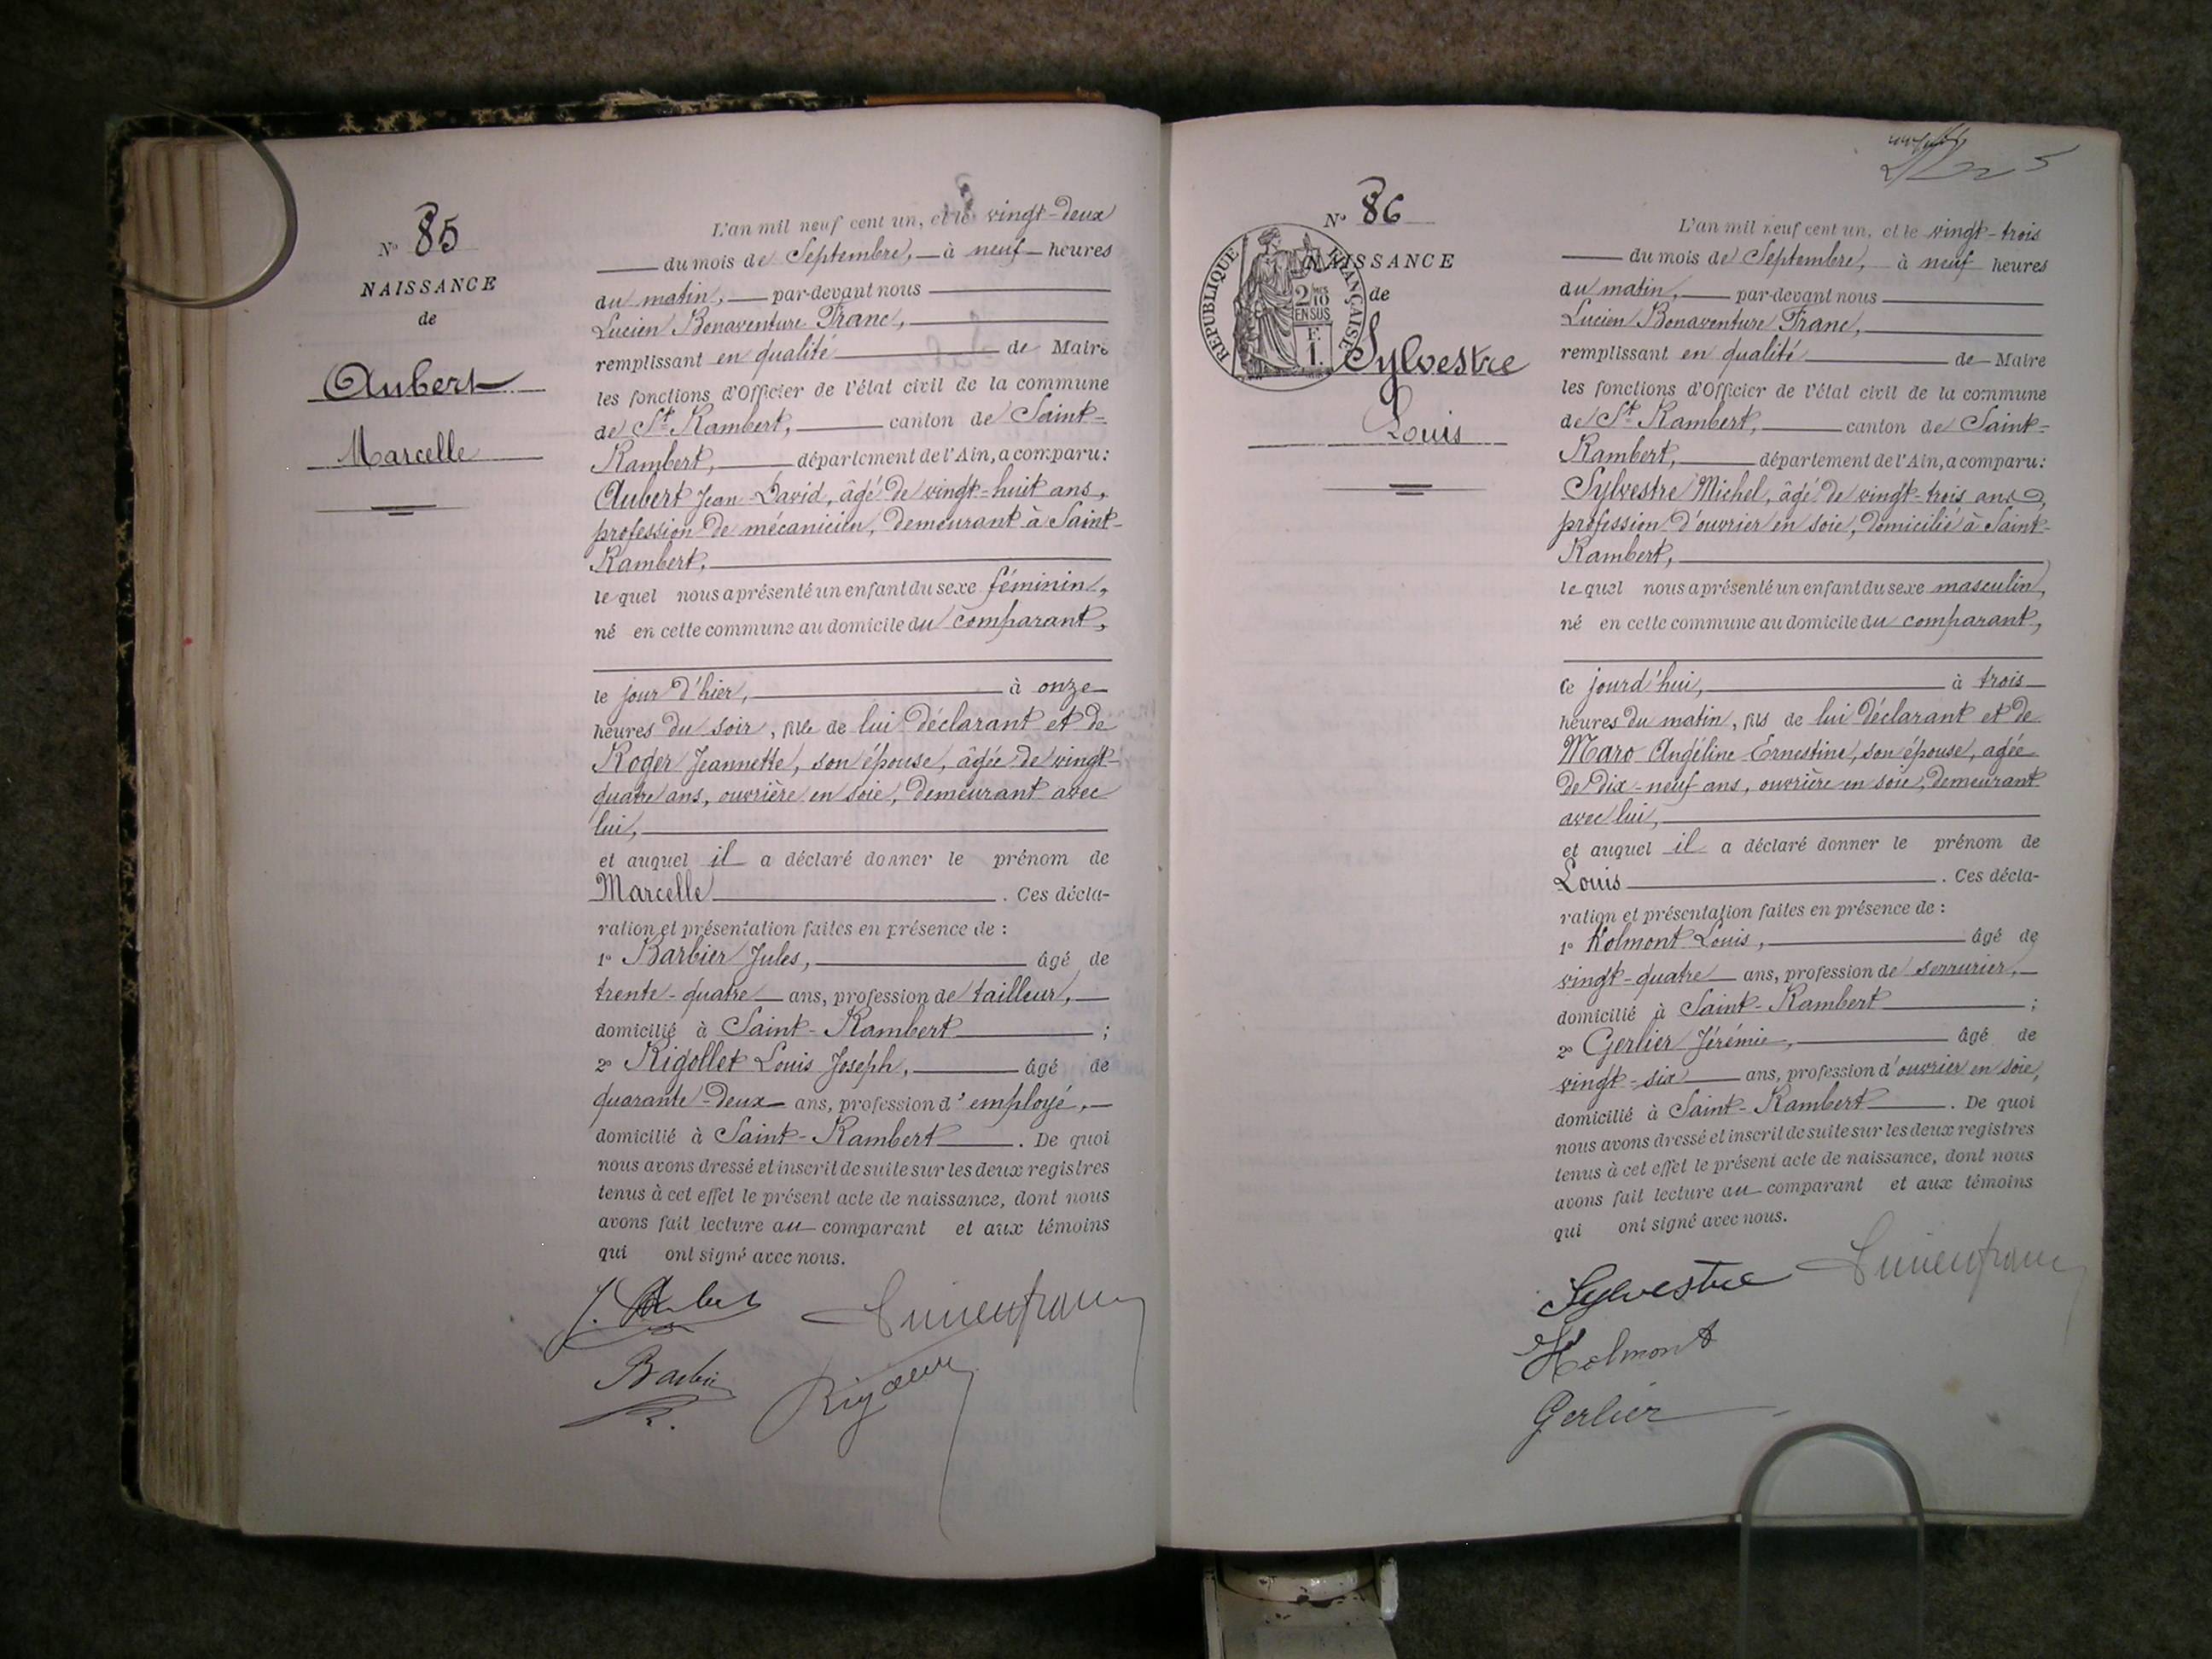 Nº 85
NAISSANCE
de
Aubert
Marcelle
L'an mil neuf cent un, et le vingt-deux
du mois de Septembre, à neuf heures
du matin, par-devant nous
Lucien Bonaventure Franc,
remplissant en qualité de Maire
les fonctions d'Officier de l'état civil de la commune
de St Rambert, canton de Saint-
Rambert, département de l'Ain, a comparu:
Aubert Jean David, âgé de vingt-huit ans,
profession de mécanicien, demeurant à Saint-
Rambert,
lequel nous a présenté un enfant du sexe féminin,
né en cette commune au domicile du comparant,
le jour d'hier, à onze
heures du soir, fille de lui déclarant et de
Roger Jeannette, son épouse, âgée de vingt-
quatre ans, ouvrière en soie, demeurant avec
lui,
et auquel il a déclaré donner le prénom de
Marcelle. Ces décla-
ration et présentation faites en présence de :
1º Barbier Jules, âgé de
trente-quatre ans, profession de tailleur,
domicilié à Saint-Rambert ;
2º Rigollet Louis Joseph, âgé de
quarante-deux ans, profession d'employé,
domicilié à Saint-Rambert. De quoi
nous avons dressé et inscrit de suite sur les deux registres
tenus à cet effet le présent acte de naissance, dont nous
avons fait lecture au comparant et aux témoins
qui ont signé avec nous.
J. Aubert
Lucien franc
Barbier
Nº 86
RÉPUBLIQUE FRANÇAISE
2/10 EN SUS
F. 1.
NAISSANCE
de
Sylvestre
Louis
L'an mil neuf cent un, et le vingt-trois
du mois de Septembre, à neuf heures
du matin, par-devant nous
Lucien Bonaventure Franc,
remplissant en qualité de Maire
les fonctions d'Officier de l'état civil de la commune
de St Rambert, canton de Saint-
Rambert, département de l'Ain, a comparu:
Sylvestre Michel, âgé de vingt-trois ans,
profession d'ouvrier en soie, domicilié à Saint-
Rambert,
lequel nous a présenté un enfant du sexe masculin,
né en cette commune au domicile du comparant,
ce jourd'hui, à trois
heures du matin, fils de lui déclarant et de
Maro Angéline Ernestine, son épouse, agée
de dix-neuf ans, ouvrière en soie, demeurant
avec lui,
et auquel il a déclaré donner le prénom de
Louis. Ces décla-
ration et présentation faites en présence de :
1º Holmont Louis, âgé de
vingt-quatre ans, profession de serrurier,
domicilié à Saint-Rambert ;
2º Gerlier Jérémie, âgé de
vingt-six ans, profession d'ouvrier en soie,
domicilié à Saint-Rambert. De quoi
nous avons dressé et inscrit de suite sur les deux registres
tenus à cet effet le présent acte de naissance, dont nous
avons fait lecture au comparant et aux témoins
qui ont signé avec nous.
Sylvestre
Lucien franc
Holmont
Gerlier